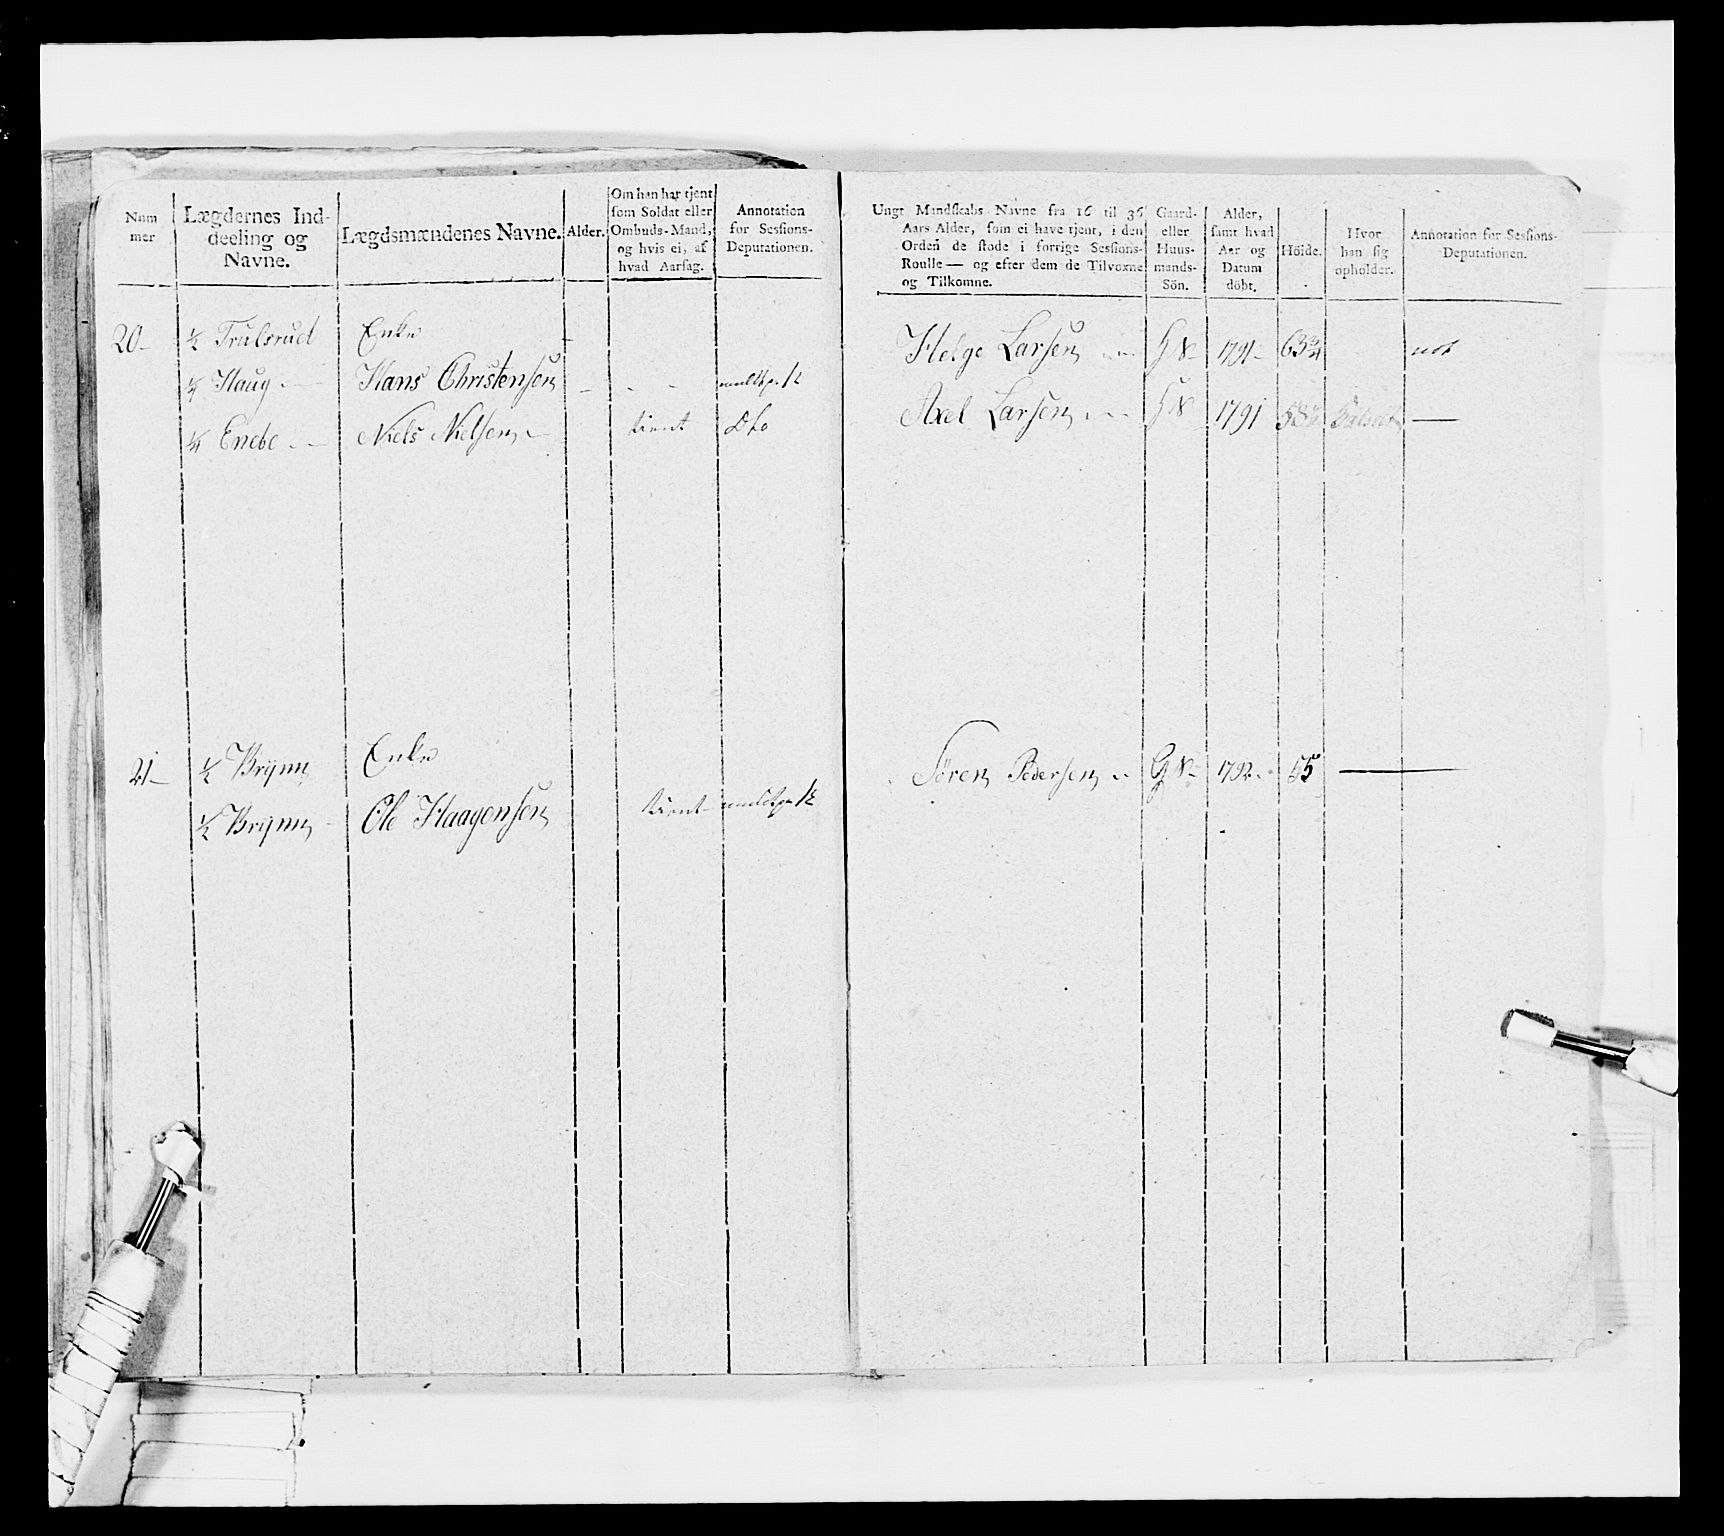 Num mer
Lægdernes Ind-
deeling og
Navne.
Lægdsmændenes Navne.
Alder.
Om han har tjent
som Soldat eller
Ombuds-Mand,
og hvis ei, af
hvad Aarsag.
Annotation
for Sessions-
Deputationen.
Ungt Mandskabs Navne fra 16 til 36
Aars Alder, som ei have tjent, i den
Orden de stode i forrige Sessions-
Roulle — og efter dem de Tilvoxne
og Tilkomne.
Gaard-
eller
Huus-
mands-
Sön.
Alder,
samt hvad
Aar og
Datum
döbt.
Höide.
Hvor
han sig
opholder.
Annotation for Sessions-
Deputationen.
20 — ½ Trulsrud Enke
¼ Haug — Hans Christensen — - -
¼ Enebe — Niels Nielsen — tient Dto
Helge Larsen — H S — 1791 — 63¾
Axel Larsen — H S 1791 —
21 — ½ Brynn Enke
½ Brynn — Ole Haagensen tient
Sören Pedersen — G S — 1792 — 55 —